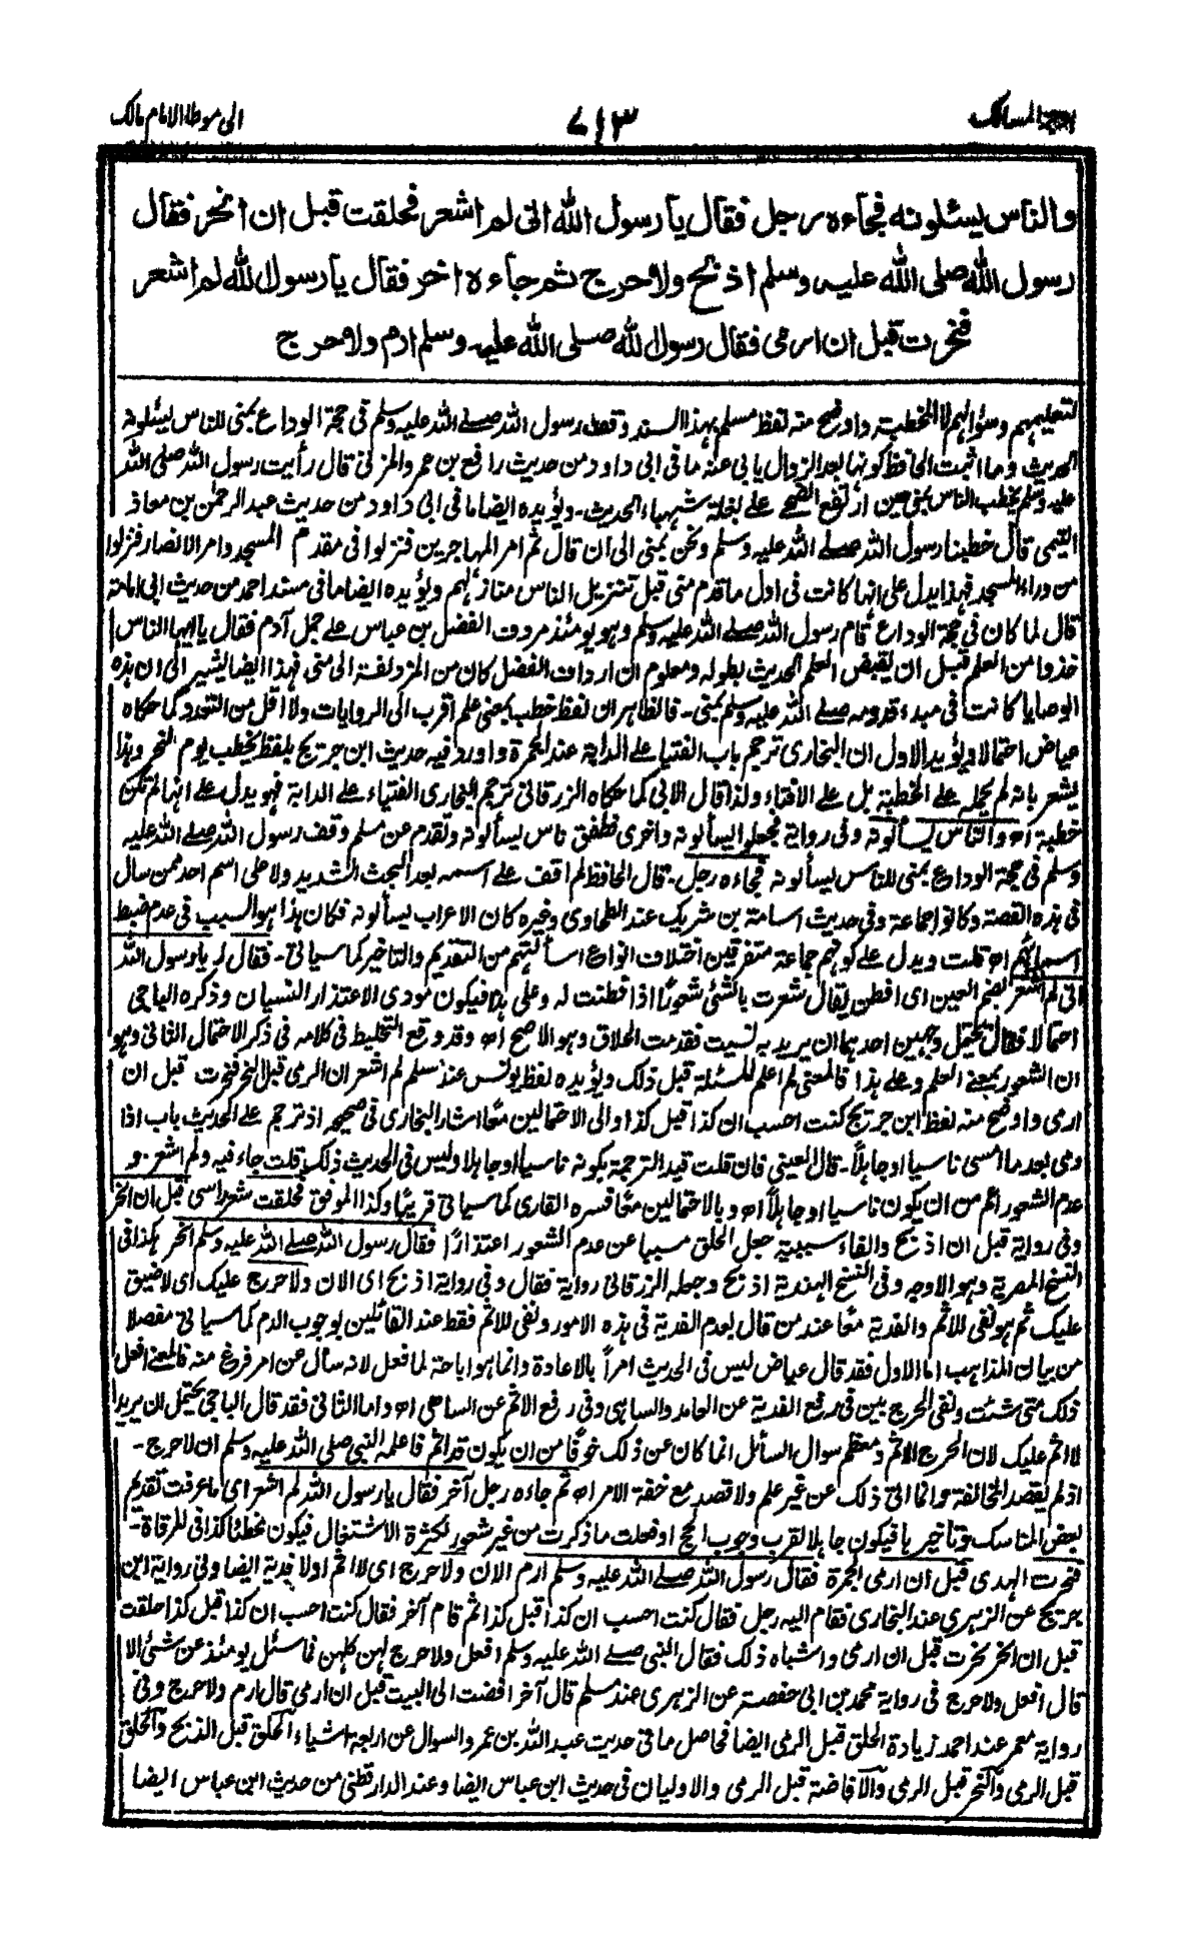 اوجز المسالك
٧١٣
الى موطا الامام مالك
والناس يسئلونه فجاءه رجل فقال يا رسول الله انى لم اشعر فحلقت قبل ان انحر فقال
رسول الله صلى الله عليه وسلم اذبح ولا حرج ثم جاءه اخر فقال يا رسول الله لم اشعر
فنحرت قبل ان ارمى فقال رسول الله صلى الله عليه وسلم ارم ولا حرج
لتعليمهم وسؤالهم لا الخطبة واوضح منه لفظ مسلم بهذا السند وقف رسول الله صلے الله عليه وسلم فى حجة الوداع بمنى للناس يسئلونه
الحديث وما اثبت الحافظ كونها بعد الزوال يابى عنه ما فى ابى داود من حديث رافع بن عمرو المزنى قال رأيت رسول الله صلى الله
عليه وسلم يخطب الناس بمنى حين ارتفع الضحے على بغلة شهباء الحديث۔ ويؤيده ايضا ما فى ابى داود من حديث عبد الرحمٰن بن معاذ
التيمى قال خطبنا رسول الله صلے الله عليه وسلم ونحن بمنى الى ان قال ثم امر المهاجرين فنزلوا فى مقدم المسجد وامر الانصار فنزلوا
من وراء المسجد فهذا يدل على انها كانت فى اول ما قدم منى قبل تنزيل الناس منازلهم ويؤيده ايضا ما فى مسند احمد من حديث ابى امامة
قال لما كان فى حجة الوداع قام رسول الله صلے الله عليه وسلم وهو يومئذ مردف الفضل بن عباس على جمل آدم فقال يا ايها الناس
خذوا من العلم قبل ان يقبض العلم الحديث بطوله ومعلوم ان ارداف الفضل كان من المزدلفة الى منى فهذا ايضا يشير الى ان هذه
الوصايا كانت فى مبدء قدومه صلے الله عليه وسلم بمنى۔ فالظاهر ان لفظ خطب بمعنى علم اقرب الى الروايات ولا اقل من التعدد كما حكاه
عياض احتمالا ويؤيد الاول ان البخارى ترجم باب الفتيا على الدابة عند الجمرة واورد فيه حديث ابن جريج بلفظ يخطب يوم النحر وهذا
يشعر بانه لم يحمله على الخطبة بل على الافتاء ولذا قال الابى كما حكاه الزرقانى ترجم البخارى الفتياء على الدابة فهو يدل على انها لم تكن
خطبة اه والناس يسألونه وفى رواية فجعلوا يسألونه واخرى فطفق ناس يسألونه وتقدم عن مسلم وقف رسول الله صلے الله عليه
وسلم فى حجة الوداع بمنى للناس يسألونه فجاءه رجل۔ قال الحافظ لم اقف على اسمه بعد البحث الشديد ولا على اسم احد ممن سال
فى هذه القصة وكانوا جماعة وفى حديث اسامة بن شريك عند الطحاوى وغيره كان الاعراب يسألونه فكان هذا هو السبب فى عدم ضبط
اسمائهم اه قلت ويدل على كونهم جماعة متفرقين اختلاف انواع اسألتهم من التقديم والتاخير كما سياتى۔ فقال له يا رسول الله
انى لم اشعر بضم العين اى افطن يقال شعرت بالشئى شعورًا اذا فطنت له وعلى هذا فيكون مؤدى الاعتذار النسيان وذكره الباجى
احتمالا فقال يحتمل وجهين احدهما ان يريد به نسيت فقدمت الحلاق وهو الاصح اه وقد وقع التخليط فى كلامه فى ذكر الاحتمال الثانى وهو
ان الشعور بمعنى العلم وعلى هذا فالمعنى لم اعلم المسئلة قبل ذلك ويؤيده لفظ يونس عند مسلم لم اشعر ان الرمى قبل النحر فنحرت قبل ان
ارمى واوضح منه لفظ ابن جريج كنت احسب ان كذا قبل كذا والى الاحتمالين معًا اشار البخارى فى صحيحه اذ ترجم على الحديث باب اذا
رمى بعد ما امسى ناسيا او جاهلًا۔ قال العينى فان قلت قيد الترجمة بكونه ناسيا او جاهلا وليس فى الحديث ذلك قلت جاء فيه ولم اشعر۔ و
عدم الشعور اعم من ان يكون ناسيا او جاهلًا اه وبالاحتمالين معًا فسره القارى كما سياتى قريبًا وكذا الموفق فحلقت شعر راسى قبل ان انحر
وفى رواية قبل ان اذبح والفاء سببية جعل الحلق مسببا عن عدم الشعور اعتذارًا فقال رسول الله صلے الله عليه وسلم انحر هكذا فى
النسخ المصرية وهو الاوجه وفى النسخ الهندية اذبح وجعله الزرقانى رواية فقال وفى رواية اذبح اى الان ولا حرج عليك اى لا ضيق
عليك ثم هو نفى للاثم والفدية معًا عند من قال بعدم الفدية فى هذه الامور ونفى للاثم فقط عند القائلين بوجوب الدم كما سياتى مفصلا
من بيان المذاهب اما الاول فقد قال عياض ليس فى الحديث امرا بالاعادة وانما هو اباحة لما فعل لانه سال عن امر فرغ منه فالمعنى افعل
ذلك متى شئت ونفى الحرج بين فى رفع الفدية عن العامد والساهى وفى رفع الاثم عن الساهى اه واما الثانى فقد قال الباجى يحتمل ان يريد
لا اثم عليك لان الحرج الاثم ومعظم سوال السائل انما كان عن ذلك خوفًا من ان يكون قد اثم فاعلمه النبى صلى الله عليه وسلم ان لا حرج۔
اذ لم يقصد المخالفة وانما اتى ذلك عن غير علم ولا قصد مع خفة الامر اه ثم جاءه رجل آخر فقال يا رسول الله لم اشعر اى ما عرفت تقديم
بعض المناسك وتاخيرها فيكون جاهلا لقرب وجوب الحج او فعلت ما ذكرت من غير شعور لكثرة الاشتغال فيكون مخطئا كذا فى المرقاة۔
فنحرت الهدى قبل ان ارمى الجمرة فقال رسول الله صلے الله عليه وسلم ارم الان ولا حرج اى لا اثم اولا فدية ايضا وفى رواية ابن
جريج عن الزهرى عند البخارى فقام اليه رجل فقال كنت احسب ان كذا قبل كذا ثم قام آخر فقال كنت احسب ان كذا قبل كذا حلقت
قبل ان انحر نحرت قبل ان ارمى واشباه ذلك فقال النبى صلے الله عليه وسلم افعل ولا حرج لهن كلهن فما سئل يومئذ عن شئى الا
قال افعل ولا حرج فى رواية محمد بن ابى حفصة عن الزهرى عند مسلم قال آخر افضت الى البيت قبل ان ارمى قال ارم ولا حرج وفى
رواية معمر عند احمد زيادة الحلق قبل الرمى ايضا فحاصل ما فى حديث عبد الله بن عمرو السوال عن اربعة اشياء الحلق قبل الذبح والحلق
قبل الرمى والنحر قبل الرمى والافاضة قبل الرمى والاوليان فى حديث ابن عباس ايضا وعند الدارقطنى من حديث ابن عباس ايضا